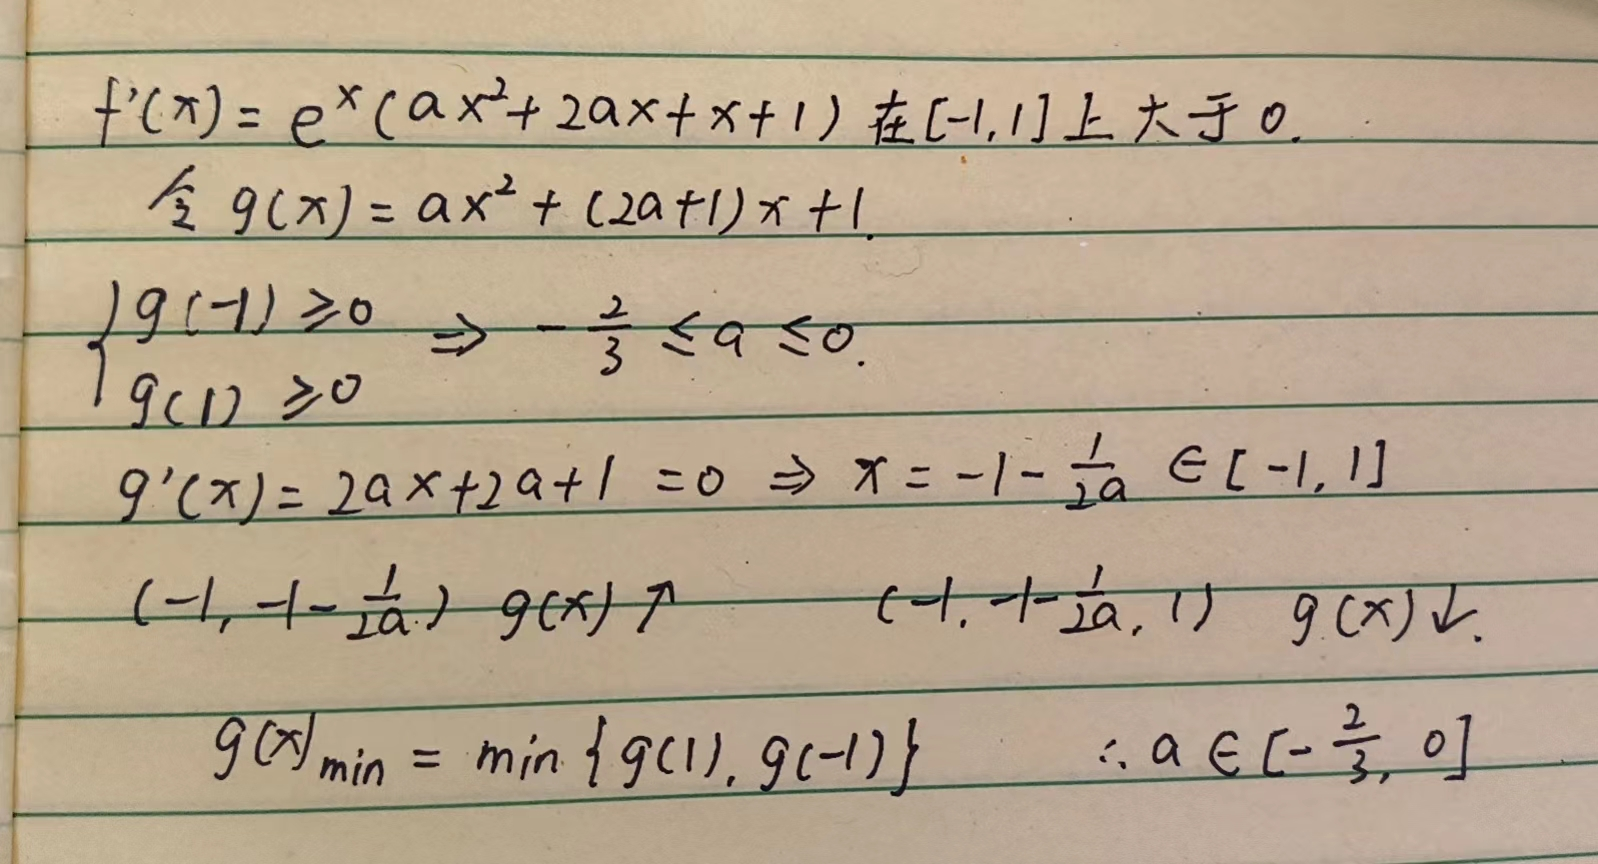 f'(x) = eˣ(ax²+2ax+x+1) 在[-1,1]上大于0.
令 g(x) = ax² + (2a+1)x+1.
{ g(-1) ≥0
g(1) ≥0 ⇒ -2/3 ≤ a ≤0.
g'(x) = 2ax+2a+1 =0 ⇒ x = -1 - 1/2a ∈ [-1, 1]
(-1, -1 - 1/2a) g(x)↑ (-1, -1 - 1/2a, 1) g(x)↓.
g(x)min = min {g(1), g(-1)} ∴ a ∈ [-2/3, 0]